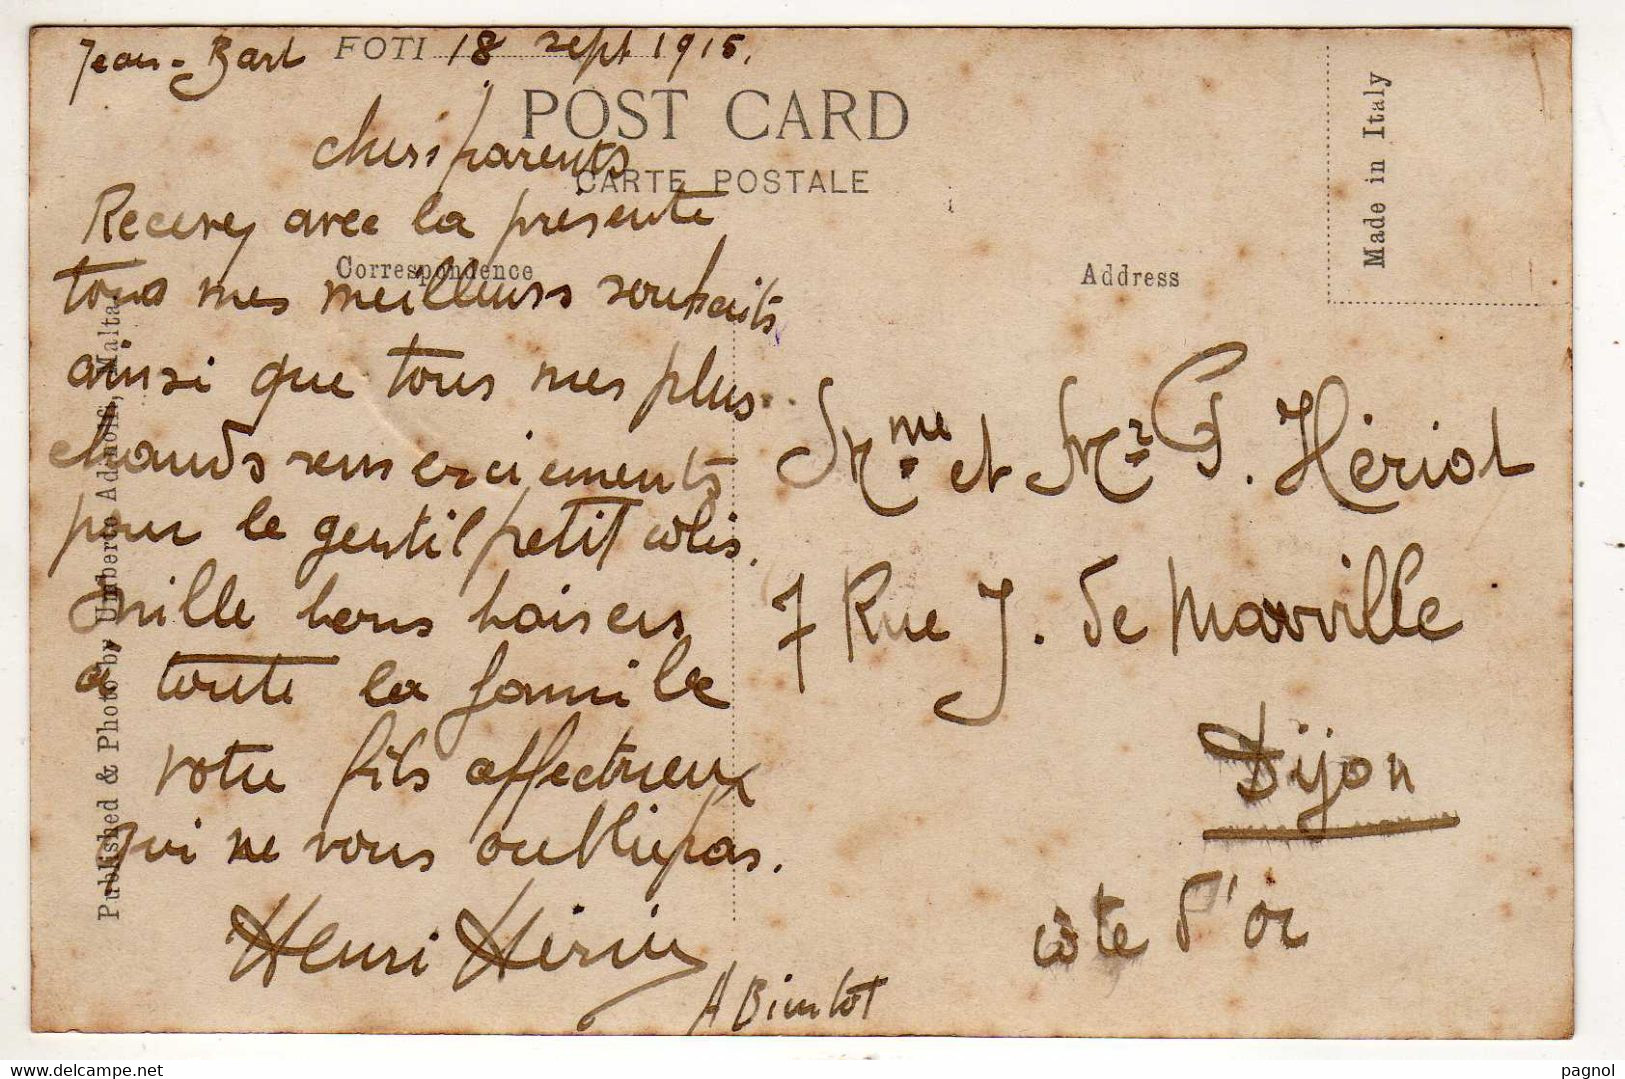 Jean-Bart FOTI 18 sept 1915.
POST CARD
CARTE POSTALE
chers parents
Recevez avec la présente
Correspondence
tous mes meilleurs souhaits
ainsi que tous mes plus
chauds remerciements
pour le gentil petit colis.
Mille bons baisers
a toute la famille
votre fils affectueux
qui ne vous oublie pas.
Henri
A Bientot
Published & Photo by Umberto Adinolfi, Malta.
Made in Italy
Address
Mme et Mr G. Hériot
7 Rue J. de Marville
Dijon
côte d'or
pagnol